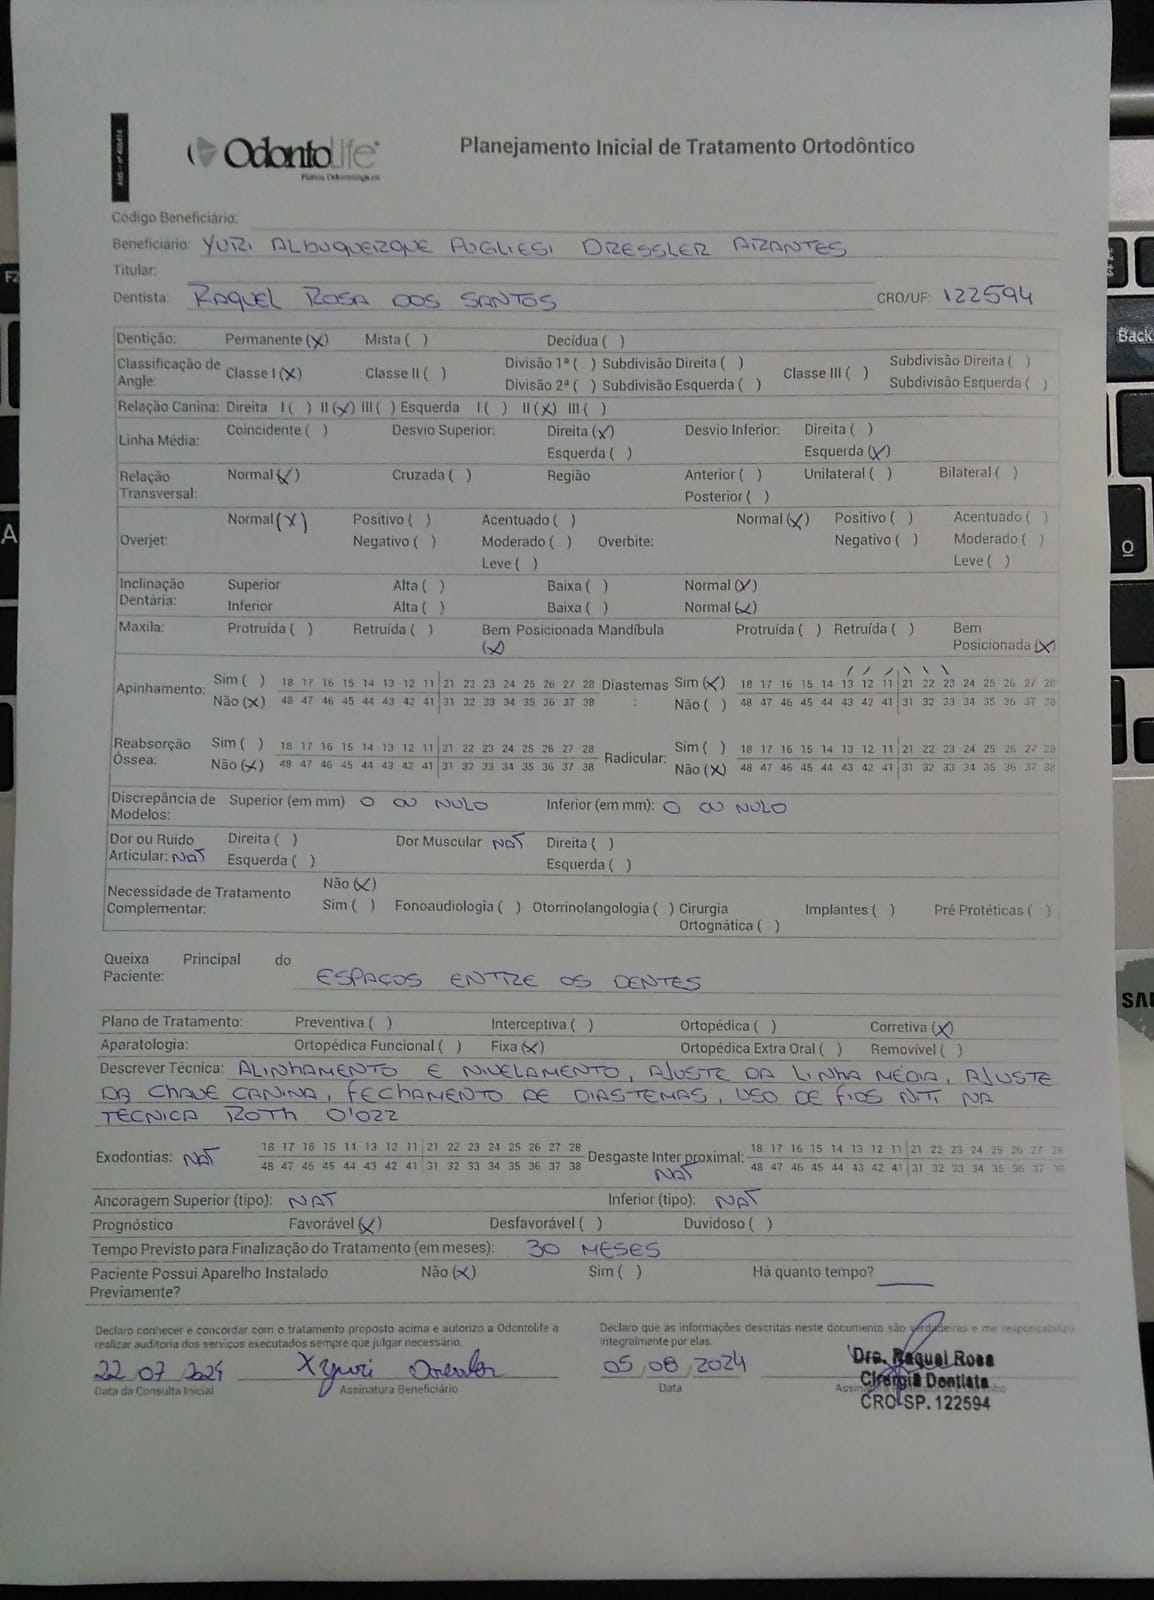 OdontoLife
Planos Odontológicos
Planejamento Inicial de Tratamento Ortodôntico
Código Beneficiário:
Beneficiário: YURI ALBUQUERQUE PUGLIESI DRESSLER ARANTES
Titular:
Dentista: RAQUEL ROSA DOS SANTOS CRO/UF: 122594
Dentição: Permanente (X) Mista ( ) Decídua ( )
Classificação de Angle: Classe I (X) Classe II ( ) Divisão 1ª ( ) Subdivisão Direita ( ) Classe III ( ) Subdivisão Direita ( )
Divisão 2ª ( ) Subdivisão Esquerda ( ) Subdivisão Esquerda ( )
Relação Canina: Direita I ( ) II (X) III ( ) Esquerda I ( ) II (X) III ( )
Linha Média: Coincidente ( ) Desvio Superior: Direita (X) Desvio Inferior: Direita ( )
Esquerda ( ) Esquerda (X)
Relação Transversal: Normal (X) Cruzada ( ) Região Anterior ( ) Unilateral ( ) Bilateral ( )
Posterior ( )
Overjet: Normal (X) Positivo ( ) Acentuado ( ) Overbite: Normal (X) Positivo ( ) Acentuado ( )
Negativo ( ) Moderado ( ) Negativo ( ) Moderado ( )
Leve ( ) Leve ( )
Inclinação Dentária: Superior Alta ( ) Baixa ( ) Normal (X)
Inferior Alta ( ) Baixa ( ) Normal (X)
Maxila: Protruída ( ) Retruída ( ) Bem Posicionada (X) Mandíbula Protruída ( ) Retruída ( ) Bem Posicionada (X)
Apinhamento: Sim ( ) 18 17 16 15 14 13 12 11 21 22 23 24 25 26 27 28 Diastemas: Sim (X) 18 17 16 15 14 13 12 11 21 22 23 24 25 26 27 28
Não (X) 48 47 46 45 44 43 42 41 31 32 33 34 35 36 37 38 Não ( ) 48 47 46 45 44 43 42 41 31 32 33 34 35 36 37 38
Reabsorção Óssea: Sim ( ) 18 17 16 15 14 13 12 11 21 22 23 24 25 26 27 28 Radicular: Sim ( ) 18 17 16 15 14 13 12 11 21 22 23 24 25 26 27 28
Não (X) 48 47 46 45 44 43 42 41 31 32 33 34 35 36 37 38 Não (X) 48 47 46 45 44 43 42 41 31 32 33 34 35 36 37 38
Discrepância de Modelos: Superior (em mm) 0 OU NULO Inferior (em mm): 0 OU NULO
Dor ou Ruído Articular: NAT Direita ( ) Dor Muscular NAT Direita ( )
Esquerda ( ) Esquerda ( )
Necessidade de Tratamento Complementar: Não (X)
Sim ( ) Fonoaudiologia ( ) Otorrinolangologia ( ) Cirurgia Ortognática ( ) Implantes ( ) Pré Protéticas ( )
Queixa Principal do Paciente: ESPAÇOS ENTRE OS DENTES
Plano de Tratamento: Preventiva ( ) Interceptiva ( ) Ortopédica ( ) Corretiva (X)
Aparatologia: Ortopédica Funcional ( ) Fixa (X) Ortopédica Extra Oral ( ) Removível ( )
Descrever Técnica: ALINHAMENTO E NIVELAMENTO, AJUSTE DA LINHA MÉDIA, AJUSTE
DA CHAVE CANINA, FECHAMENTO DE DIASTEMAS, USO DE FIOS NITI NA
TÉCNICA ROTH 0'022
Exodontias: NAT 18 17 16 15 14 13 12 11 21 22 23 24 25 26 27 28 Desgaste Inter proximal: NAT 18 17 16 15 14 13 12 11 21 22 23 24 25 26 27 28
48 47 46 45 44 43 42 41 31 32 33 34 35 36 37 38 48 47 46 45 44 43 42 41 31 32 33 34 35 36 37 38
Ancoragem Superior (tipo): NAT Inferior (tipo): NAT
Prognóstico Favorável (X) Desfavorável ( ) Duvidoso ( )
Tempo Previsto para Finalização do Tratamento (em meses): 30 MESES
Paciente Possui Aparelho Instalado Previamente? Não (X) Sim ( ) Há quanto tempo?
Declaro conhecer e concordar com o tratamento proposto acima e autorizo a Odontolife a
realizar auditoria dos serviços executados sempre que julgar necessário.
Declaro que as informações descritas neste documento são verdadeiras e me responsabilizo
integralmente por elas.
22 07 2024 X Yuri Dressler 05 08 2024
Data da Consulta Inicial Assinatura Beneficiário Data
Dra. Raquel Rosa
Cirurgiã Dentista
CRO-SP. 122594
Back
SA